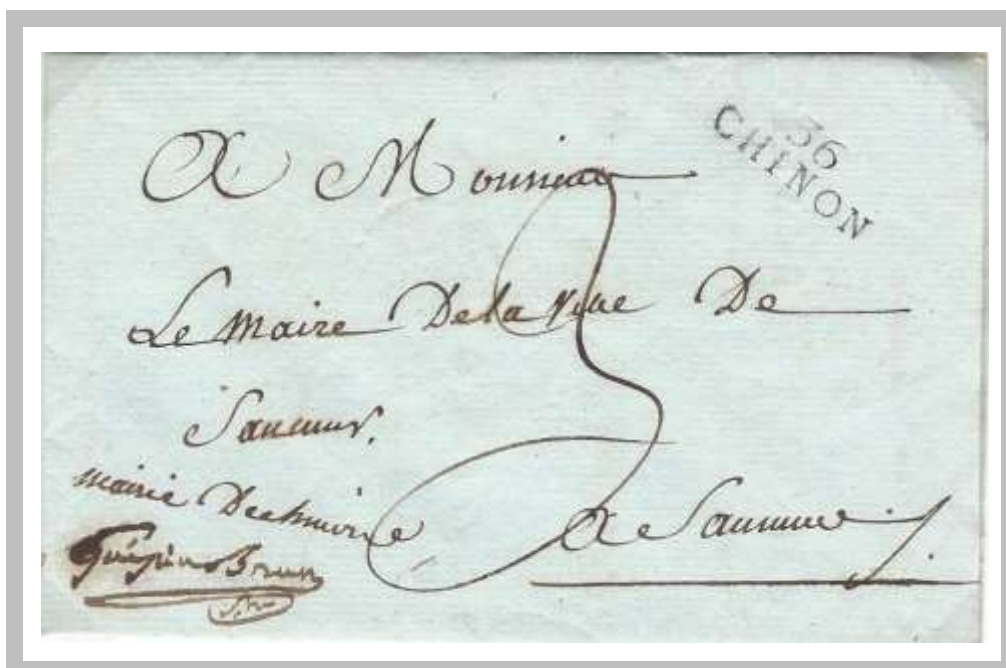 36
CHINON
A Monsieur
Le Maire De la Ville De
Saumur.
Mairie De
3
A Saumur